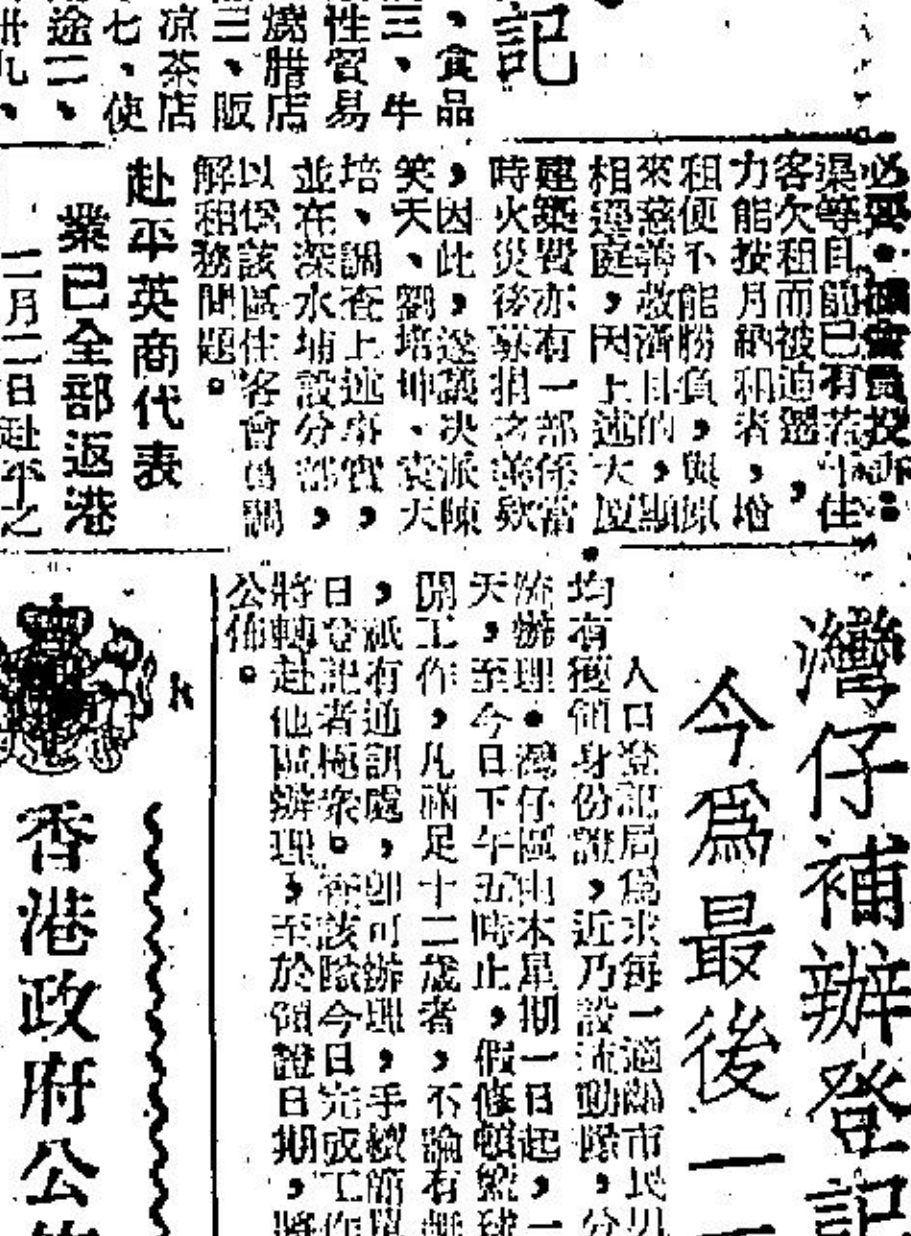 記
、食品
三、牛
性貿易
燒腊店
三、販
凉茶店
七、使
途二、
卅九、
必要。
投訴：
渠等目前已有若干住
客欠租而被迫遷，
力能按月納租者，增
租便不能勝負，與原
來慈善救濟目的，顯
相逕庭，因上述大廈
建築費亦有一部係當
時火災後募捐之善欵
，因此，遂議决派陳
笑天、劉培坤、袁天
培、調查上述事實，
並在深水埔設分部，
以係該區住客會爲調
解租務問題。
赴平英商代表
業已全部返港
二月二日赴平之
灣仔補辦登記
今爲最後一
人口登記局爲求每一適齡市民切
均有獲領身份證，近乃設流動隊，分
流辦理。灣仔區由本星期一日起，一
天，至今日下午五時止，假修頓籃球
開工作，凡滿足十二歲者，不論有無
，祇有通訊處，卽可辦理，手續簡單
日登記者極衆。在該隊今日完成工作
將轉赴他區辦理，至於領證日期，將
公佈。
香港政府公